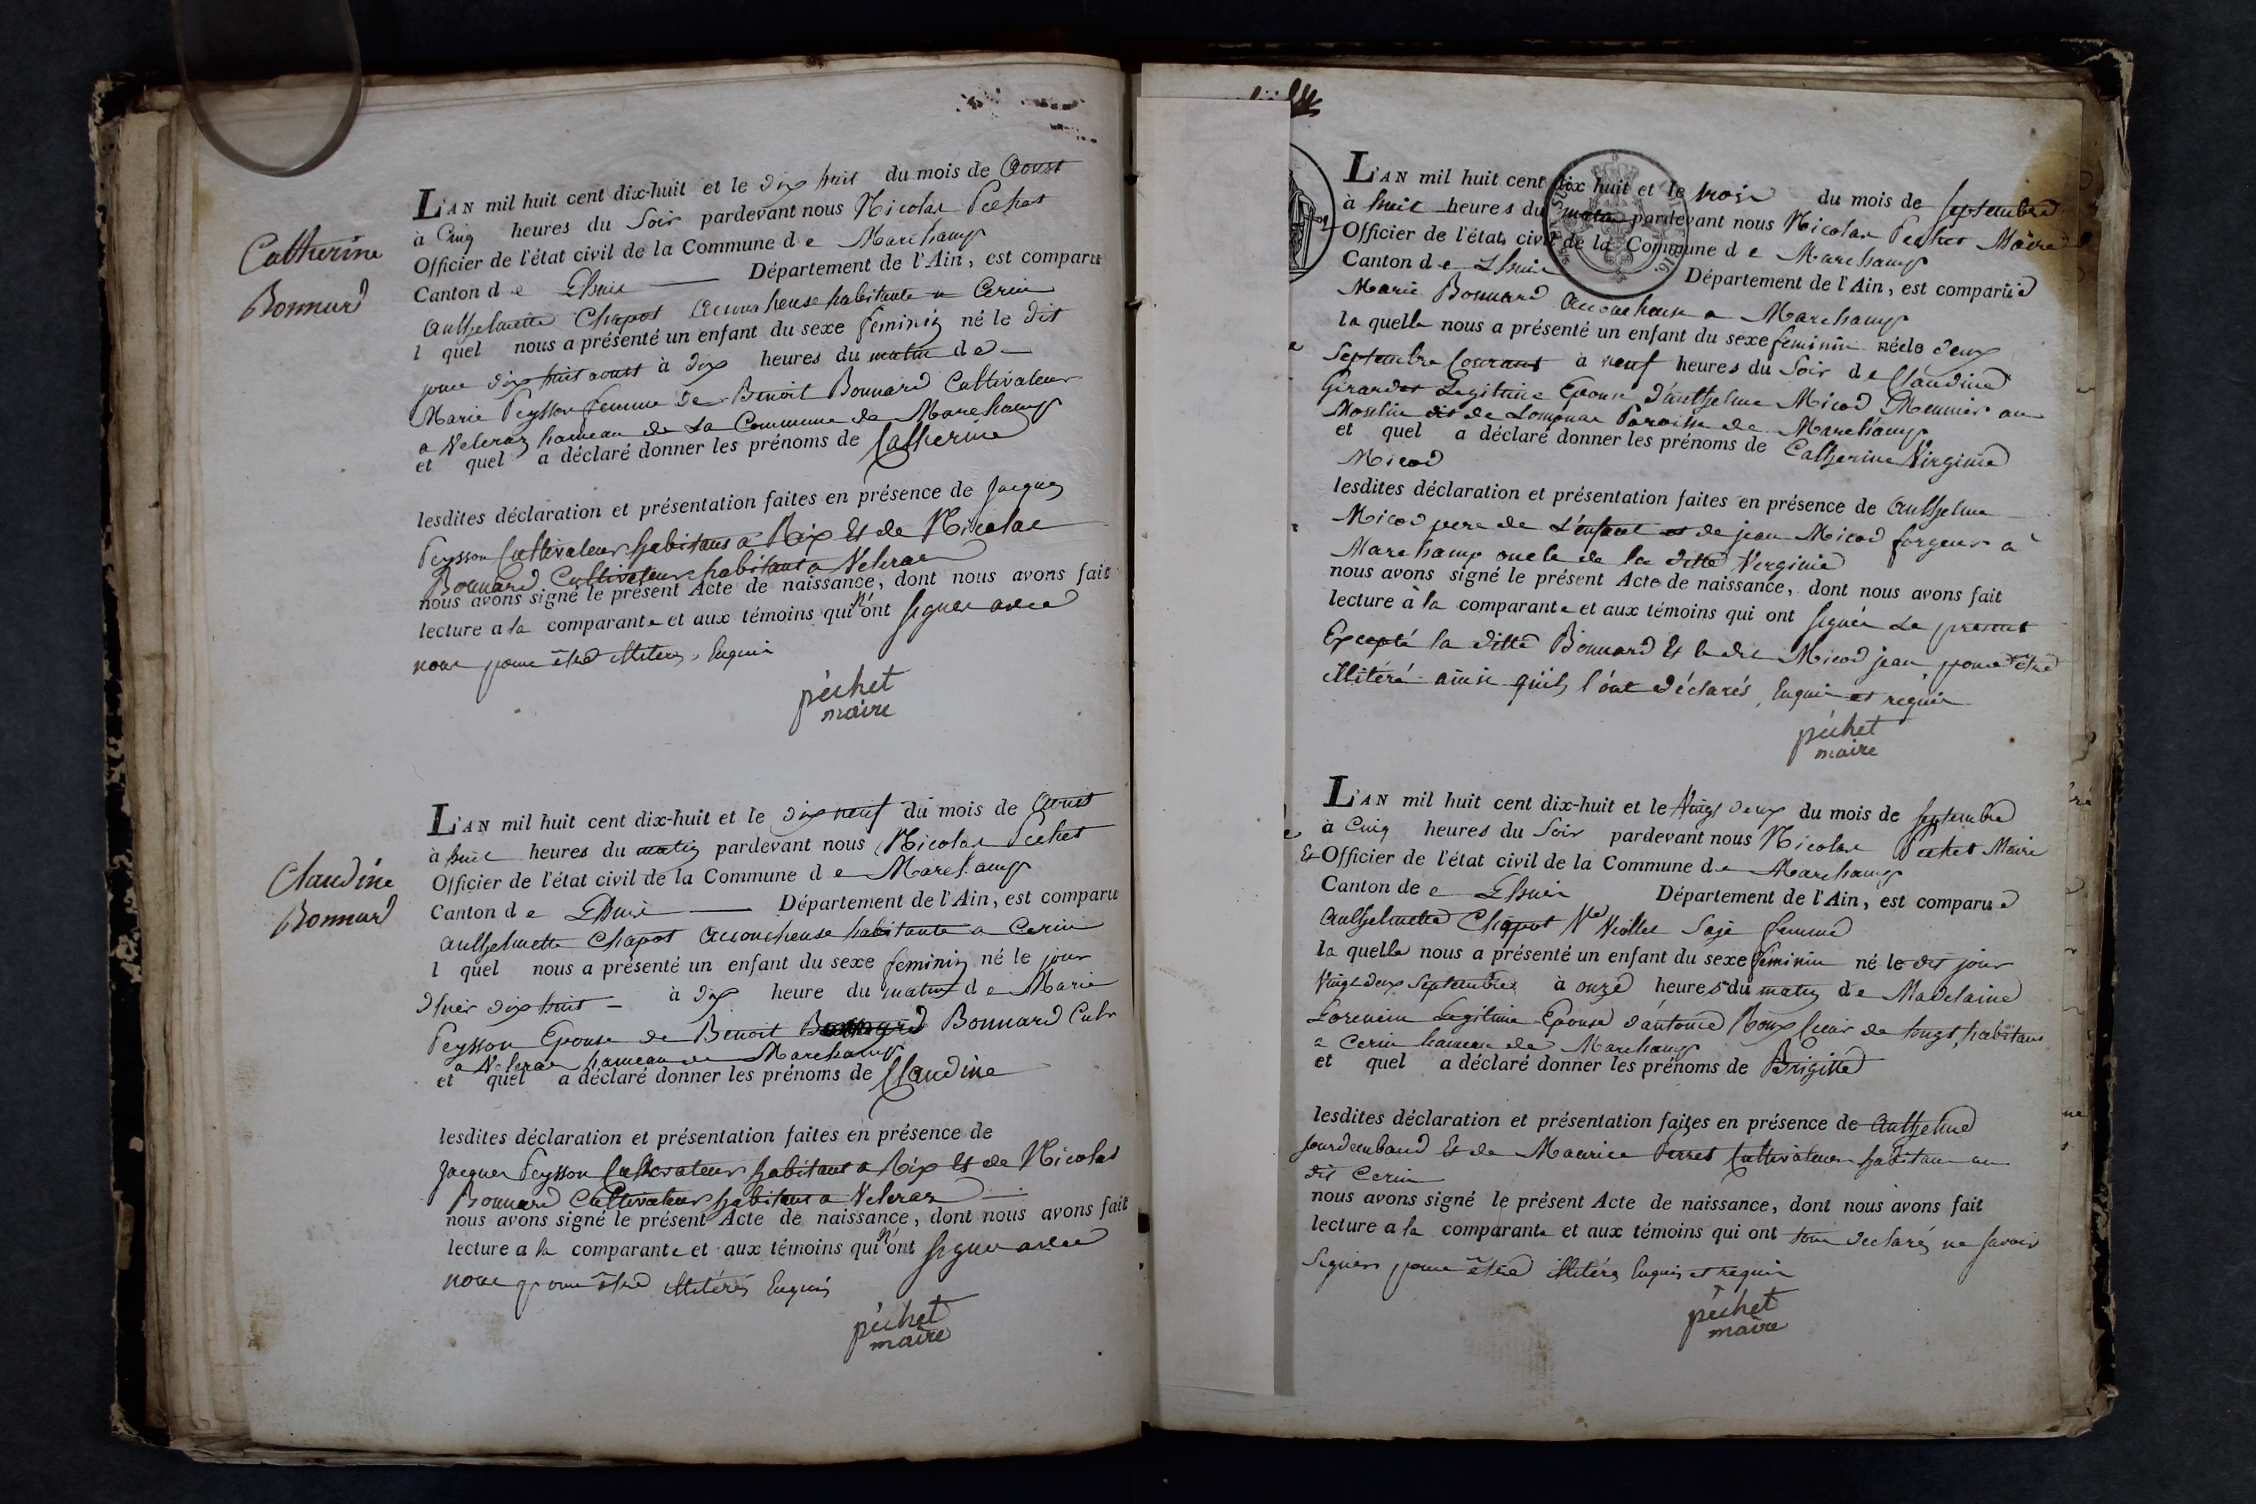 Catherine
Bonnard
L'AN mil huit cent dix-huit et le dix huit du mois de Aoust
à Cinq heures du Soir pardevant nous Nicolas Pechet
Officier de l'état civil de la Commune de Marchamp
Canton de Lhuis Département de l'Ain, est comparu
Anthelmette Chapot accoucheuse habitante a Cerin
l quel nous a présenté un enfant du sexe feminin né le dit
jour dix huit aoust à dix heures du matin de
Marie Peysson femme de Benoit Bonnard Cultivateur
a Veleraz hameau de La Commune de Marchamp
et quel a déclaré donner les prénoms de Catherine
lesdites déclaration et présentation faites en présence de Jacques
Peysson Cultivateur habitant a Rix Et de Nicolas
Bonnard Cultivateur habitant a Veleraz
nous avons signé le présent Acte de naissance, dont nous avons fait
lecture a la comparante et aux témoins qui n'ont signer avec
nous pour être illiteres, Enquis
péchet
maire
Claudine
Bonnard
L'AN mil huit cent dix-huit et le dix neuf du mois de Aoust
à huit heures du matin pardevant nous Nicolas Pechet
Officier de l'état civil de la Commune de Marchamp
Canton de Lhuis Département de l'Ain, est comparu
Anthelmette Chapot accoucheuse habitante a Cerin
l quel nous a présenté un enfant du sexe feminin né le jour
d'hier dix huit à dix heure du matin de Marie
Peysson Epouse de Benoit Bonnard Cultr
a Veleraz hameau de Marchamp
et quel a déclaré donner les prénoms de Claudine
lesdites déclaration et présentation faites en présence de
Jacques Peysson Cultivateur habitant a Rix Et de Nicolas
Bonnard Cultivateur habitant a Veleraz
nous avons signé le présent Acte de naissance, dont nous avons fait
lecture a la comparante et aux témoins qui n'ont signer avec
nous pour être illitérés Enquis
péchet
maire
L'AN mil huit cent dix huit et le trois du mois de septembre
à huit heures du matin pardevant nous Nicolas Pechet Maire
Officier de l'état civil de la Commune de Marchamp
Canton de Lhuis Département de l'Ain, est comparüe
Marie Bonnard Accoucheuse a Marchamp
la quelle nous a présenté un enfant du sexe feminin née le deux
Septembre Courant à neuf heures du Soir de Claudine
Girardet Legitime Epouse d'anthelme Micod Meunier au
Moulin dit de Lompnas Paroisse de Marchamp
et quel a déclaré donner les prénoms de Catherine Virginie
Micod
lesdites déclaration et présentation faites en présence de Anthelme
Micod pere de L'enfant et de jean Micod forgeur à
Marchamp oncle de la ditte Verginie
nous avons signé le présent Acte de naissance, dont nous avons fait
lecture à la comparante et aux témoins qui ont signés Le present
Excepté la ditte Bonnard Et le dit Micod jean pour être
illitéré ainsi quils l'ont déclarés, Enquis et requis
péchet
maire
L'AN mil huit cent dix-huit et le Vingt deux du mois de septembre
à Cinq heures du Soir pardevant nous Nicolas Pechet Maire
Et Officier de l'état civil de la Commune de Marchamp
Canton de e Lhuis Département de l'Ain, est comparue
Anthelmette Chapot Ve Viollet Sage femme
la quelle nous a présenté un enfant du sexe feminin né le dit jour
Vingt deux Septembre à onze heures du matin de Madelaine
Lorencin Legitime Epouse d'antoine Roux habitans
a Cerin hameau de Marchamp
et quel a déclaré donner les prénoms de Brigitte
lesdites déclaration et présentation faites en présence de Anthelme
Et de Maurice Perret Cultivateur habitans au
dit Cerin
nous avons signé le présent Acte de naissance, dont nous avons fait
lecture a la comparante et aux témoins qui ont tous declarés ne savoir
Signer pour être illitérés Enquis et requis
péchet
maire